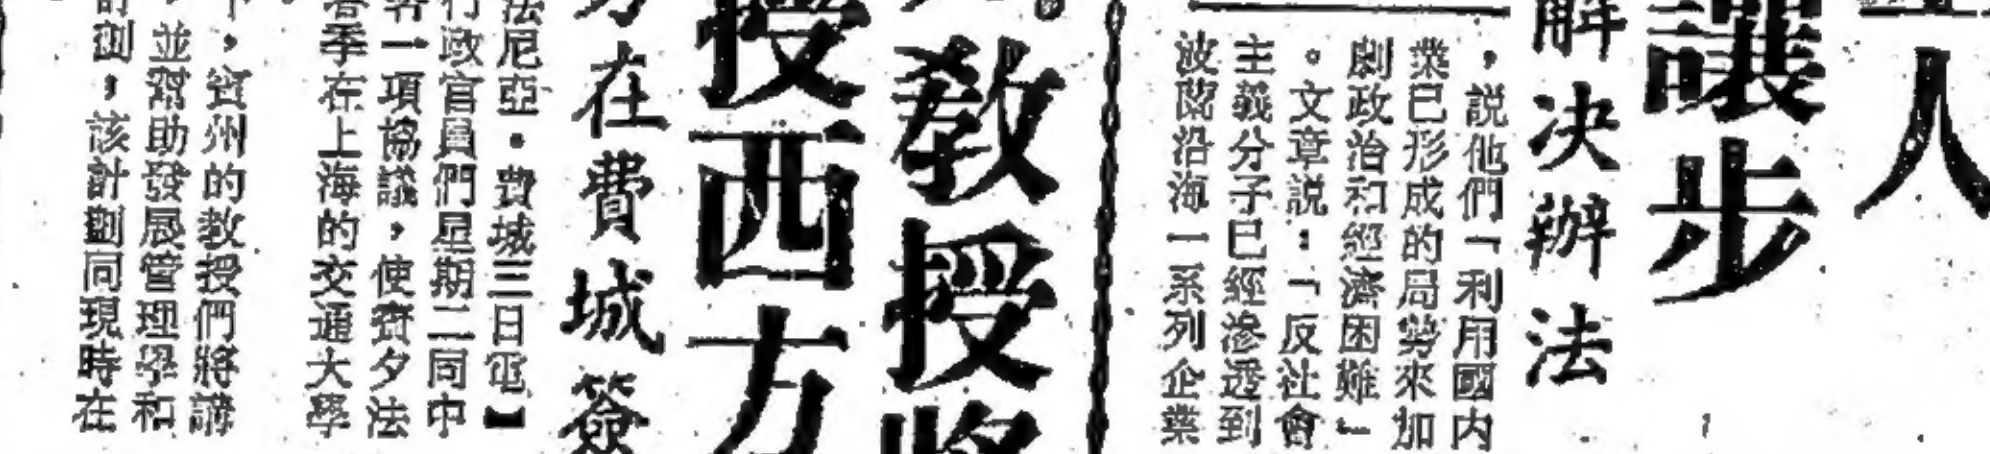 人
讓步
解决辦法
，説他們「利用國内
業已形成的局勢來加
劇政治和經濟困難」
。文章説：「反社會
主義分子已經滲透到
波蘭沿海一系列企業
教授將
授西方
在費城簽
法尼亞・費城三日電】
行政官員們星期二同中
一項協議，使賓夕法
季在上海的交通大學
，賓州的教授們將講
，並幫助發展管理學和
劃，該計劃同現時在